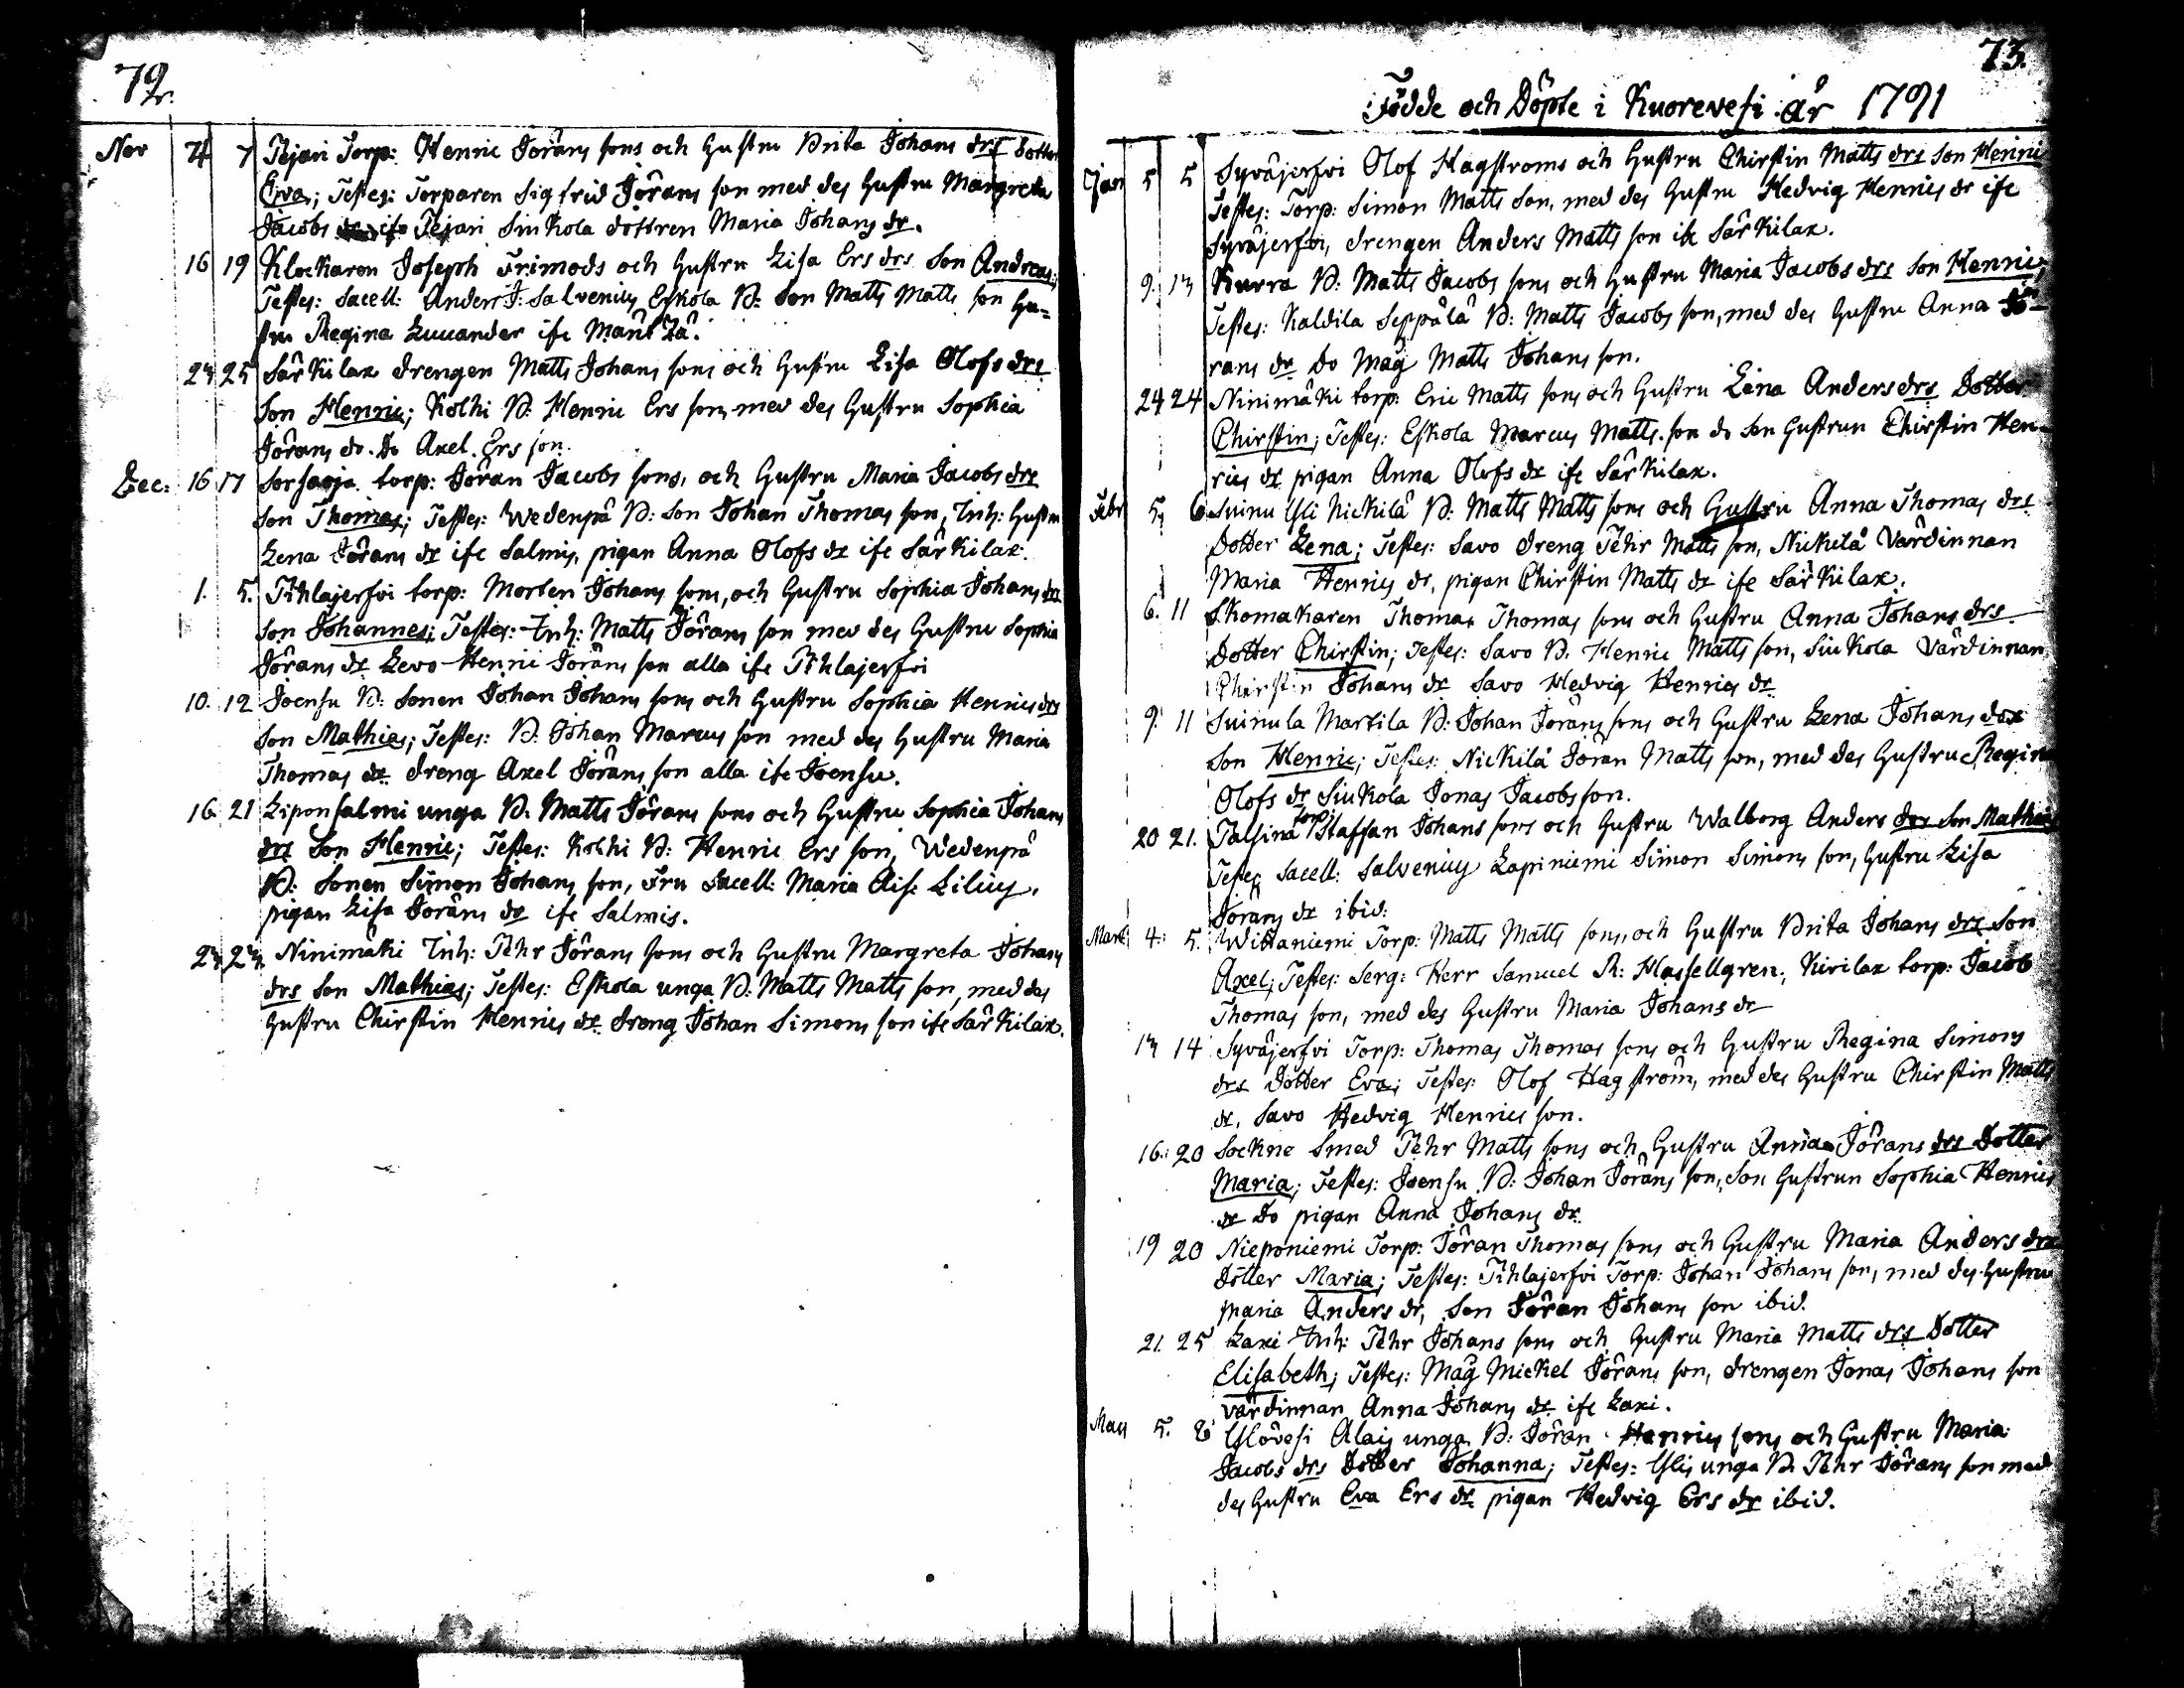 72.
Nov 4 7 Tejari Torp: Henric Jörans sons och Hustru Brita Johans drs dotter
Eva; Testes: Torparen Sigfrid Jörans son med des Hustru Margreta
Jacobs dr ife Tejari Siukola dottren Maria Johans dr.
16 19 Klockaren Joseph Frimods och Hustru Lisa Ers drs Son Andreas;
Testes: Sacell: Anders J: Salvenius, Eskola B: Son Matts Matts son Hu=
stru Regina Lucander ife
23 25 Särkilax drengen Matts Johans sons och Hustru Lisa Olofs drs
Son Henric; Kolhi B: Henric Ers son, med des Hustru Sophia
Jörans dr. Do Axel Ers son.
Dec: 16 17 torp: Jöran Jacobs sons, och Hustru Maria Jacobs drs
son Thomas; Testes: Wedenpä B: Son Johan Thomas son, Inh: Hustru
Lena Jörans dr ife Salmis, pigan Anna Olofs dr ife Särkilax.
1. 5. Pihlajerfvi torp: Morten Johans sons, och Hustru Sophia Johans drs
son Johannes; Testes: Inh: Matts Jörans son med des Hustru Sophia
Jörans dr Henric Jörans son alla ife Pihlajerfvi
10. 12 Joensu B: Sonen Johan Johans sons och Hustru Sophia Henrics drs
Son Mathias; Testes: B. Johan Marcus son med des Hustru Maria
Thomas dr dreng Axel Jörans son alla ife Joensu.
16 21 Liponsalmi unga B. Matts Jörans sons och Hustru Sophia Johans
drs Son Henric; Testes: Kolhi B: Henric Ers son, Wedenpä
B: Sonen Simon Johans son, Fru Sacell: Maria Lilius,
pigan Lisa Jörans dr ife Salmis.
23 23 Ninimäki Inh: Pehr Jörans sons och Hustru Margreta Johans
drs Son Mathias; Testes: Eskola unga B: Matts Matts son, med des
Hustru Chirstin Henrics dr dreng Johan Simons son ife Särkilax.
73.
Födde och Döpte i Kuorevesi år 1791
Jan 5 5 Syväjerfvi Olof Hagströms och Hustru Chirstin Matts drs Son Henric
Testes: Torp: Simon Matts Son, med des Hustru Hedvig Henrics dr ife
Syväjerfvi, drengen Anders Matts son ife Särkilax.
9. 13 Kurra B: Matts Jacobs sons och Hustru Maria Jacobs drs Son Henric;
Testes: Kaldila Seppälä B: Matts Jacobs son, med des Hustru Anna Jö-
rans dr Do Måg Matts Johans son.
24 24 Ninimäki torp: Eric Matts sons och Hustru Lena Anders drs Dotter
Chirstin; Testes: Eskola Marcus Matts son do Son Hustrun Chirstin Hen-
rics dr pigan Anna Olofs dr ife Särkilax.
Febr 5. 6. Suinu Yli Nickilä B: Matts Matts sons och Hustru Anna Thomas drs
Dotter Lena; Testes: Savo dreng Pehr Matts son, Nickilä Värdinnan
Maria Henrics dr, pigan Chirstin Matts dr ife Särkilax.
6. 11 Skomakaren Thomas Thomas sons och Hustru Anna Johans drs
Dotter Chirstin; Testes: Savo B. Henric Matts son, Siukola Värdinnan
Chirstin Johans dr Savo Hedvig Henrics dr
9. 11 Suinula Martila B: Johan Jörans sons och Hustru Lena Johans drs
Son Henric; Testes: Nickilä Jöran Matts son, med des Hustru Regin
Olofs dr Siukola Jonas Jacobs son.
20 21. Talsina torp: Staffan Johans sons och Hustru Walborg Anders drs Son Mathias
Testes Sacell: Salvenius Lapiniemi Simon Simons son, Hustru Lisa
Jörans dr ibid:
Mart 4: 5. Wittaniemi Torp: Matts Matts sons, och Hustru Brita Johans drs Son
Axel; Testes: Serg: Herr Samuel R: Hassellgren, Kivilax torp: Jacob
Thomas son, med des Hustru Maria Johans dr
13 14 Syväjerfvi Torp: Thomas Thomas sons och Hustru Regina Simons
drs Dotter Eva; Testes: Olof Hagström, med des Hustru Chirstin Matts
dr, Savo Hedvig Henrics son.
16: 20 Sockne Smed Pehr Matts sons och Hustru Anna Jörans drs Dotter
Maria; Testes: Joensu B: Johan Jörans son, Son Hustrun Sophia Henrics
dr Do pigan Anna Johans dr
19 20 Nieponiemi Torp: Jöran Thomas sons och Hustru Maria Anders drs
Dotter Maria; Testes: Pihlajerfvi Torp: Johan Johans son, med des Hustru
Maria Anders dr, Son Jöran Johans son ibid.
21. 25 Laxi Inh: Pehr Johans sons och Hustru Maria Matts drs Dotter
Elisabeth; Testes: Måg Mickel Jörans son, drengen Jonas Johans son
värdinnan Anna Johans dr ife Laxi.
Maii 5. 8 Ylövesi Alais unga B: Jöran Henrics sons och Hustru Maria
Jacobs drs Dotter Johanna; Testes: Ylis unga B: Pehr Jörans son med
des Hustru Eva Ers dr pigan Hedvig Ers dr ibid.